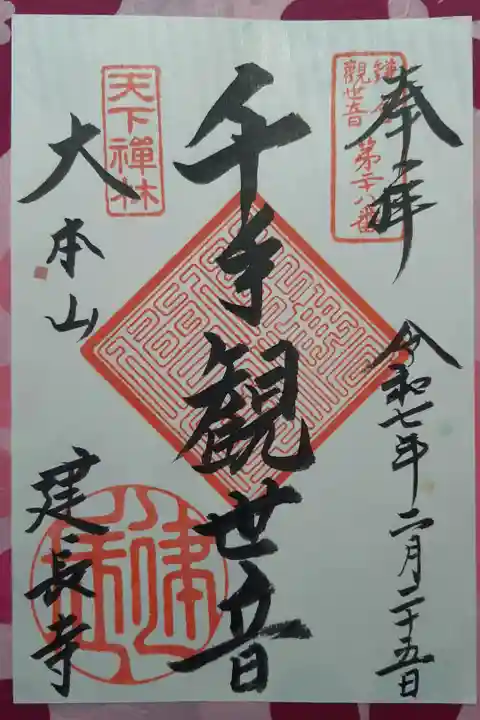 奉拝
鎌倉
観世音
第二十八番
令和七年二月二十五日
千手観世音
天下禅林
大本山
建長寺